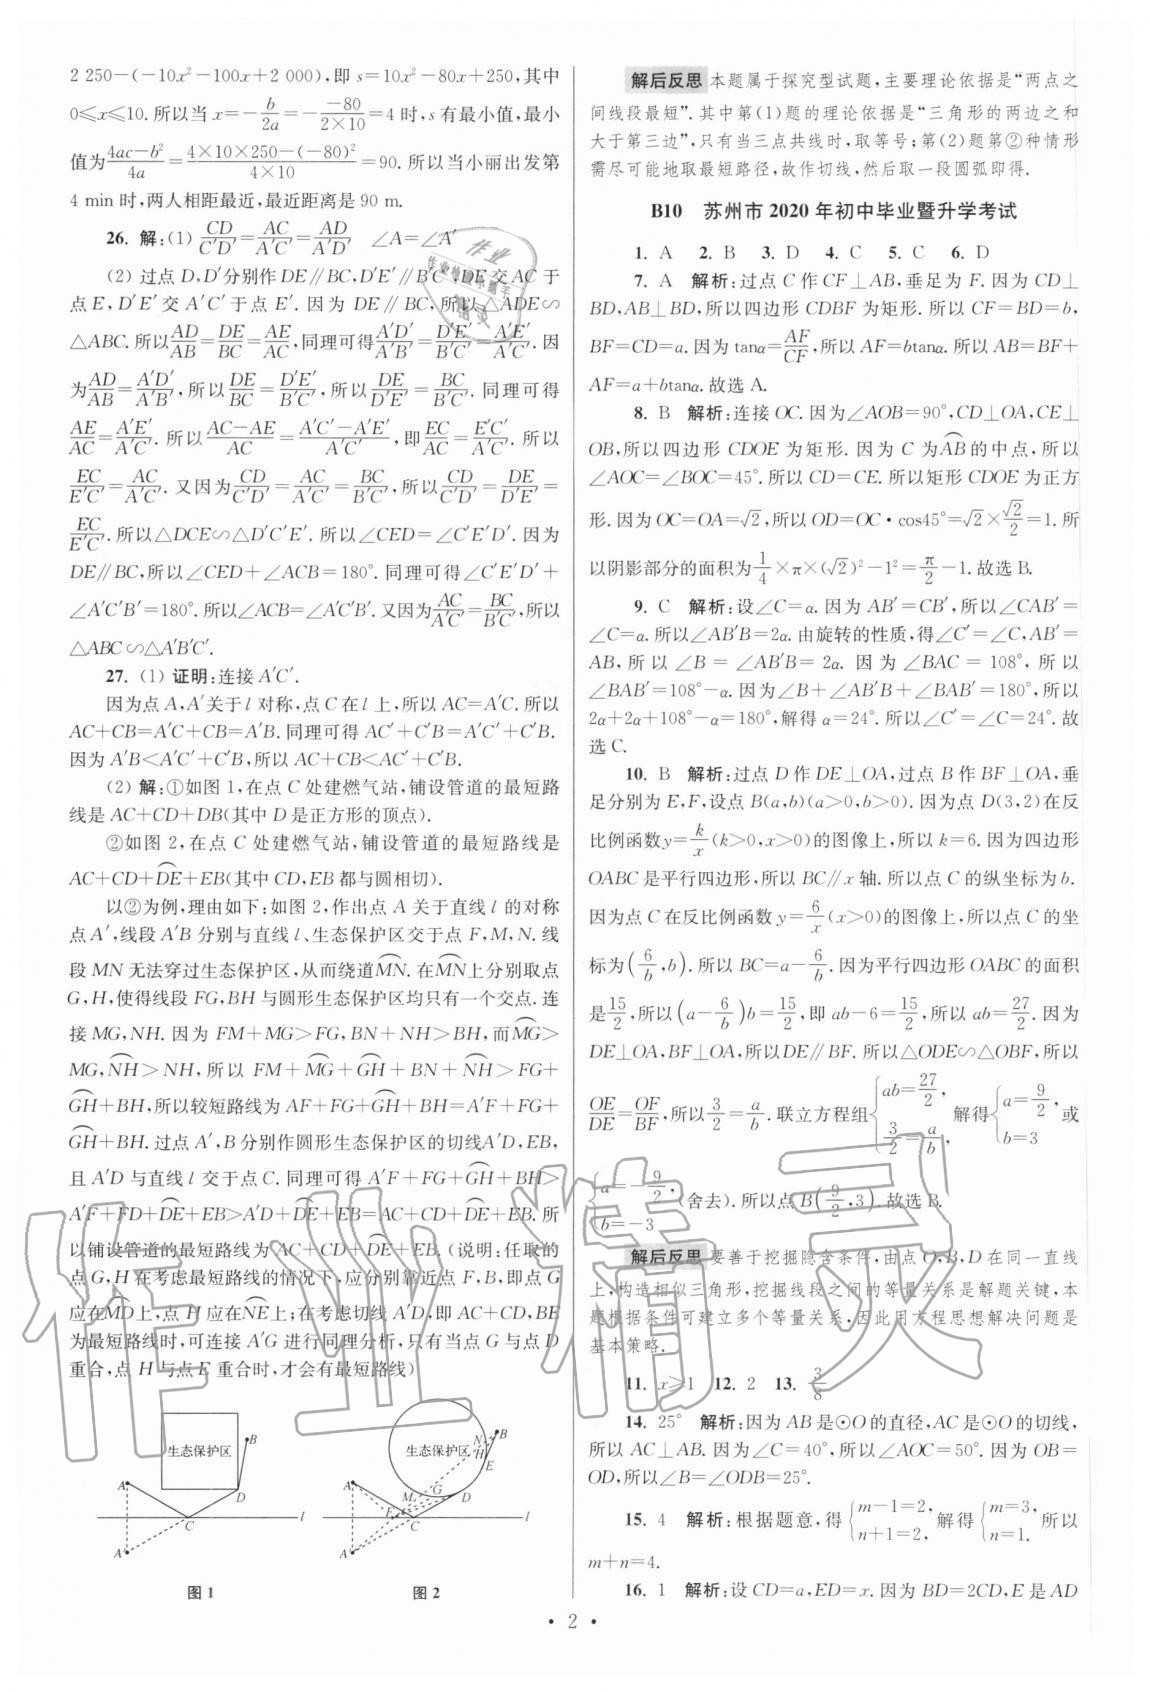 2 250−(−10x²−100x+2 000),即 s=10x²−80x+250,其中
0≤x≤10. 所以当 x=−b/2a=−(−80)/(2×10)=4 时,s 有最小值,最小
值为(4ac−b²)/4a=(4×10×250−(−80)²)/(4×10)=90. 所以当小丽出发第
4 min 时,两人相距最近,最近距离是 90 m.
26. 解:(1) CD/C′D′=AC/A′C′=AD/A′D′ ∠A=∠A′
(2) 过点 D,D′分别作 DE∥BC,D′E′∥B′C′,DE 交 AC 于
点 E,D′E′交 A′C′于点 E′. 因为 DE∥BC,所以△ADE∽
△ABC. 所以AD/AB=DE/BC=AE/AC,同理可得A′D′/A′B′=D′E′/B′C′=A′E′/A′C′. 因
为AD/AB=A′D′/A′B′,所以DE/BC=D′E′/B′C′,所以DE/D′E′=BC/B′C′. 同理可得
AE/AC=A′E′/A′C′. 所以(AC−AE)/AC=(A′C′−A′E′)/A′C′,即EC/AC=E′C′/A′C′. 所以
EC/E′C′=AC/A′C′. 又因为CD/C′D′=AC/A′C′=BC/B′C′,所以CD/C′D′=DE/D′E′=
EC/E′C′. 所以△DCE∽△D′C′E′. 所以∠CED=∠C′E′D′. 因为
DE∥BC,所以∠CED+∠ACB=180°. 同理可得∠C′E′D′+
∠A′C′B′=180°. 所以∠ACB=∠A′C′B′. 又因为AC/A′C′=BC/B′C′,所以
△ABC∽△A′B′C′.
27. (1) 证明:连接 A′C′.
因为点 A,A′关于 l 对称,点 C 在 l 上,所以 AC=A′C. 所以
AC+CB=A′C+CB=A′B. 同理可得 AC′+C′B=A′C′+C′B.
因为 A′B<A′C′+C′B,所以 AC+CB<AC′+C′B.
(2) 解:①如图 1,在点 C 处建燃气站,铺设管道的最短路
线是 AC+CD+DB(其中 D 是正方形的顶点).
②如图 2,在点 C 处建燃气站,铺设管道的最短路线是
AC+CD+D͡E+EB(其中 CD,EB 都与圆相切).
以②为例,理由如下:如图 2,作出点 A 关于直线 l 的对称
点 A′,线段 A′B 分别与直线 l、生态保护区交于点 F,M,N. 线
段 MN 无法穿过生态保护区,从而绕道M͡N. 在M͡N上分别取点
G,H,使得线段 FG,BH 与圆形生态保护区均只有一个交点. 连
接 MG,NH. 因为 FM+MG>FG,BN+NH>BH,而M͡G>
MG,N͡H>NH,所以 FM+M͡G+G͡H+BN+N͡H>FG+
G͡H+BH,所以较短路线为 AF+FG+G͡H+BH=A′F+FG+
G͡H+BH. 过点 A′,B 分别作圆形生态保护区的切线A′D,EB,
且 A′D 与直线 l 交于点 C. 同理可得 A′F+FG+G͡H+BH>
A′F+FD+D͡E+EB>A′D+D͡E+EB=AC+CD+D͡E+EB. 所
以铺设管道的最短路线为 AC+CD+D͡E+EB.(说明:任取的
点 G,H 在考虑最短路线的情况下,应分别靠近点 F,B,即点 G
应在M͡D上,点 H 应在N͡E上;在考虑切线 A′D,即 AC+CD,BE
为最短路线时,可连接 A′G 进行同理分析,只有当点 G 与点 D
重合,点 H 与点 E 重合时,才会有最短路线)
生态保护区 B A D C l A′
图 1
生态保护区 N B H E A M G D F C l A′
图 2
解后反思 本题属于探究型试题,主要理论依据是“两点之
间线段最短”. 其中第(1)题的理论依据是“三角形的两边之和
大于第三边”,只有当三点共线时,取等号;第(2)题第②种情形
需尽可能地取最短路径,故作切线,然后取一段圆弧即得.
B10 苏州市 2020 年初中毕业暨升学考试
1. A 2. B 3. D 4. C 5. C 6. D
7. A 解析:过点 C 作 CF⊥AB,垂足为 F. 因为 CD⊥
BD,AB⊥BD,所以四边形 CDBF 为矩形. 所以 CF=BD=b,
BF=CD=a. 因为 tanα=AF/CF,所以 AF=btanα. 所以 AB=BF+
AF=a+btanα. 故选 A.
8. B 解析:连接 OC. 因为∠AOB=90°,CD⊥OA,CE⊥
OB,所以四边形 CDOE 为矩形. 因为 C 为A͡B的中点,所以
∠AOC=∠BOC=45°. 所以 CD=CE. 所以矩形 CDOE 为正方
形. 因为 OC=OA=√2,所以 OD=OC·cos45°=√2×√2/2=1. 所
以阴影部分的面积为1/4×π×(√2)²−1²=π/2−1. 故选 B.
9. C 解析:设∠C=α. 因为 AB′=CB′,所以∠CAB′=
∠C=α. 所以∠AB′B=2α. 由旋转的性质,得∠C′=∠C,AB′=
AB,所以∠B=∠AB′B=2α. 因为∠BAC=108°,所以
∠BAB′=108°−α. 因为∠B+∠AB′B+∠BAB′=180°,所以
2α+2α+108°−α=180°,解得 α=24°. 所以∠C′=∠C=24°. 故
选 C.
10. B 解析:过点 D 作 DE⊥OA,过点 B 作 BF⊥OA,垂
足分别为 E,F,设点 B(a,b)(a>0,b>0). 因为点 D(3,2)在反
比例函数y=k/x(k>0,x>0)的图像上,所以 k=6. 因为四边形
OABC 是平行四边形,所以 BC∥x 轴. 所以点 C 的纵坐标为 b.
因为点 C 在反比例函数 y=6/x(x>0)的图像上,所以点 C 的坐
标为(6/b,b). 所以 BC=a−6/b. 因为平行四边形 OABC 的面积
是15/2,所以(a−6/b)b=15/2,即 ab−6=15/2,所以 ab=27/2. 因为
DE⊥OA,BF⊥OA,所以DE∥BF. 所以△ODE∽△OBF,所以
OE/DE=OF/BF,所以3/2=a/b. 联立方程组{ab=27/2, 3/2=a/b, 解得{a=9/2, b=3 或
{a=−9/2, b=−3 (舍去). 所以点 B(9/2,3). 故选 B.
解后反思 要善于挖掘隐含条件,由点 O,B,D 在同一直线
上,构造相似三角形,挖掘线段之间的等量关系是解题关键,本
题根据条件可建立多个等量关系,因此用方程思想解决问题是
基本策略.
11. x≥1 12. 2 13. 3/8
14. 25° 解析:因为 AB 是⊙O 的直径,AC 是⊙O 的切线,
所以 AC⊥AB. 因为∠C=40°,所以∠AOC=50°. 因为 OB=
OD,所以∠B=∠ODB=25°.
15. 4 解析:根据题意,得{m−1=2, n+1=2, 解得{m=3, n=1. 所以
m+n=4.
16. 1 解析:设 CD=a,ED=x. 因为 BD=2CD,E 是 AD
• 2 •
作业精灵